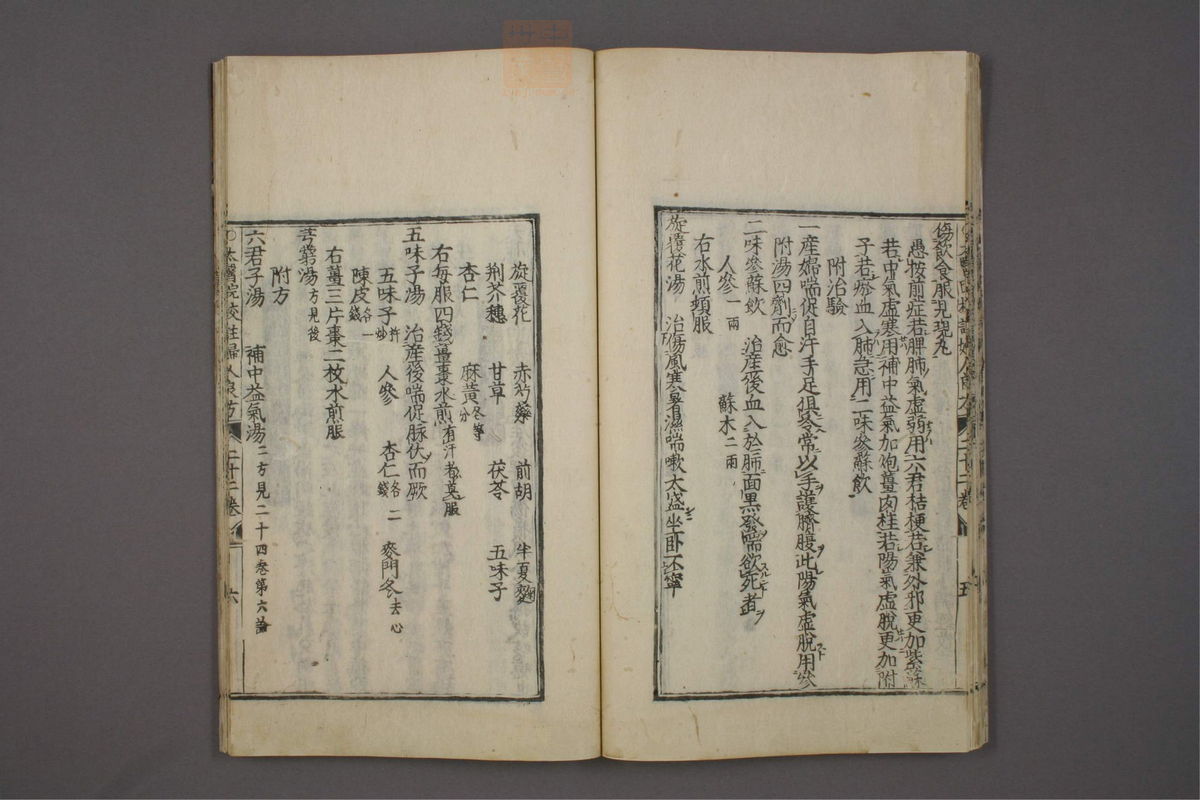 傷飲食服見晛丸
愚按前症若脾肺氣虛弱用六君桔梗若兼外邪更加紫蘇
若中氣虛寒用補中益氣加炮薑肉桂若陽氣虛脫更加附
子若瘀血入肺急用二味參蘇飲
附治驗
一產婦喘促自汗手足俱冷常以手護臍腹此陽氣虛脫用參
附湯四劑而愈
二味參蘇飲 治產後血入於肺面黑發喘欲死者
人參一兩 蘇木二兩
右水煎頻服
旋覆花湯 治傷風寒暑濕喘嗽太盛坐臥不寧
旋覆花 赤芍藥 前胡 半夏麴
荊芥穗 甘草 茯苓 五味子
杏仁 麻黃各等分
右每服四錢薑棗水煎有汗者莫服
五味子湯 治產後喘促脉伏而厥
五味子杵炒 人參 杏仁各二錢 麥門冬去心
陳皮各一錢
右薑三片棗二枚水煎服
芎藭湯方見後
附方
六君子湯 補中益氣湯二方見二十四卷第六論
太醫院校註婦人良方 二十二卷 六